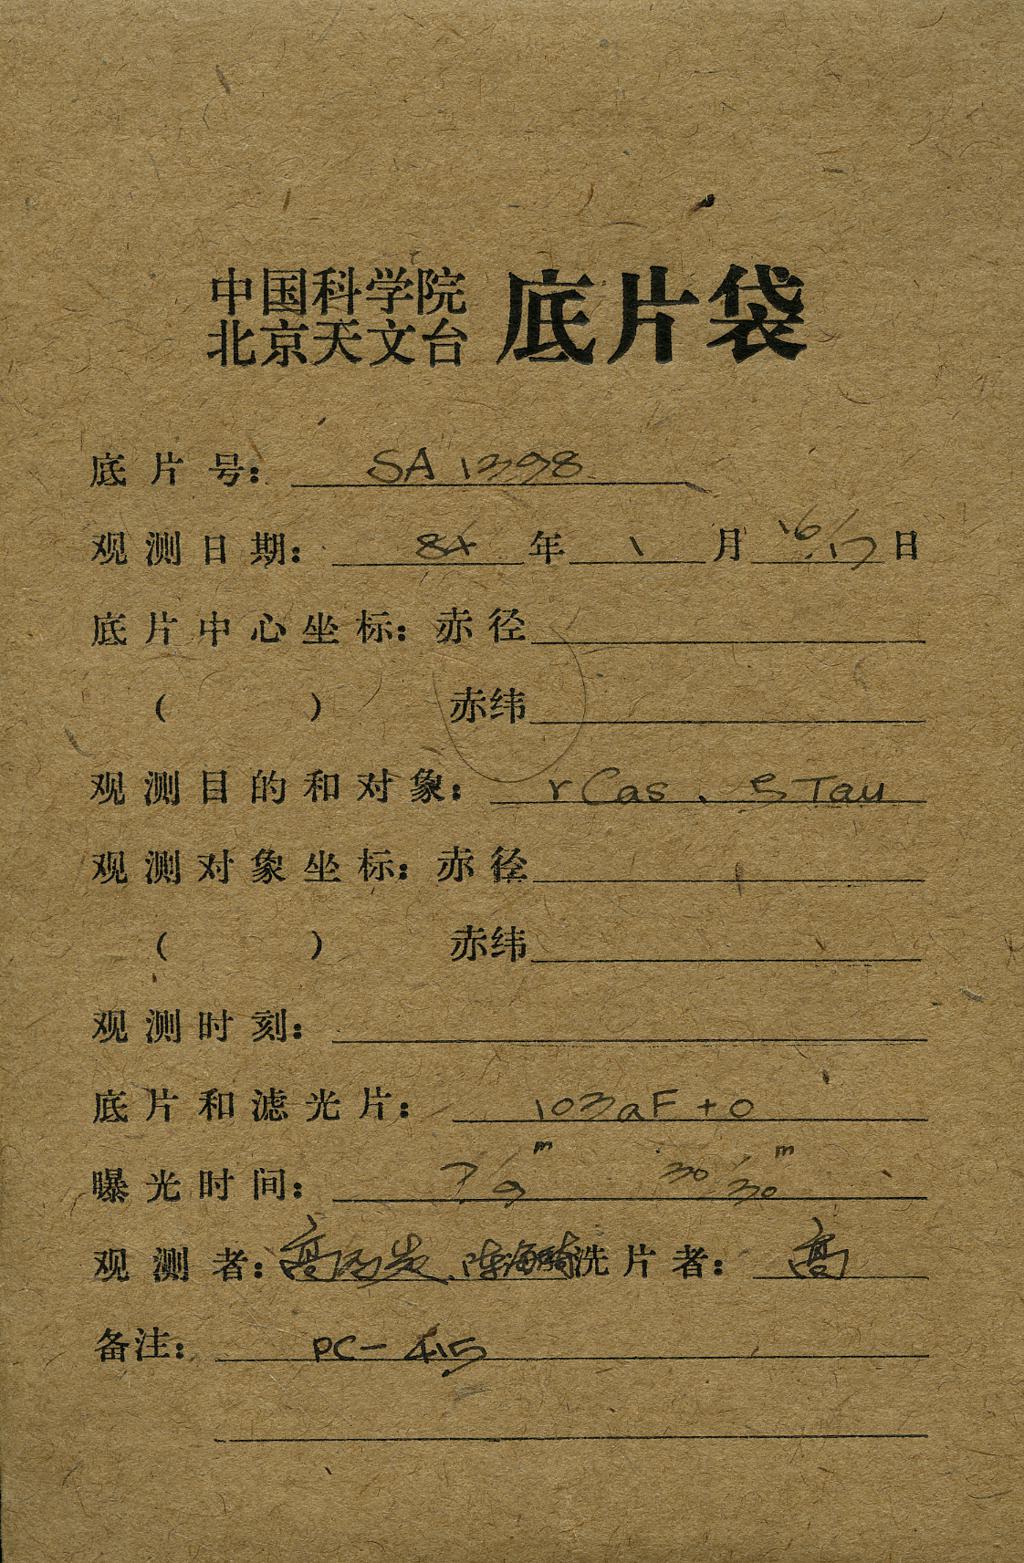 中国科学院
北京天文台 底片袋
底片号: SA 1398
观测日期: 84 年 1 月 16/17 日
底片中心坐标: 赤径
( ) 赤纬
观测目的和对象: r Cas、ξ Tau
观测对象坐标: 赤径
( ) 赤纬
观测时刻:
底片和滤光片: 103aF + 0
曝光时间: 7/9 m 30/30 m
观测者: 高 陈海 洗片者: 高
备注: PC-415